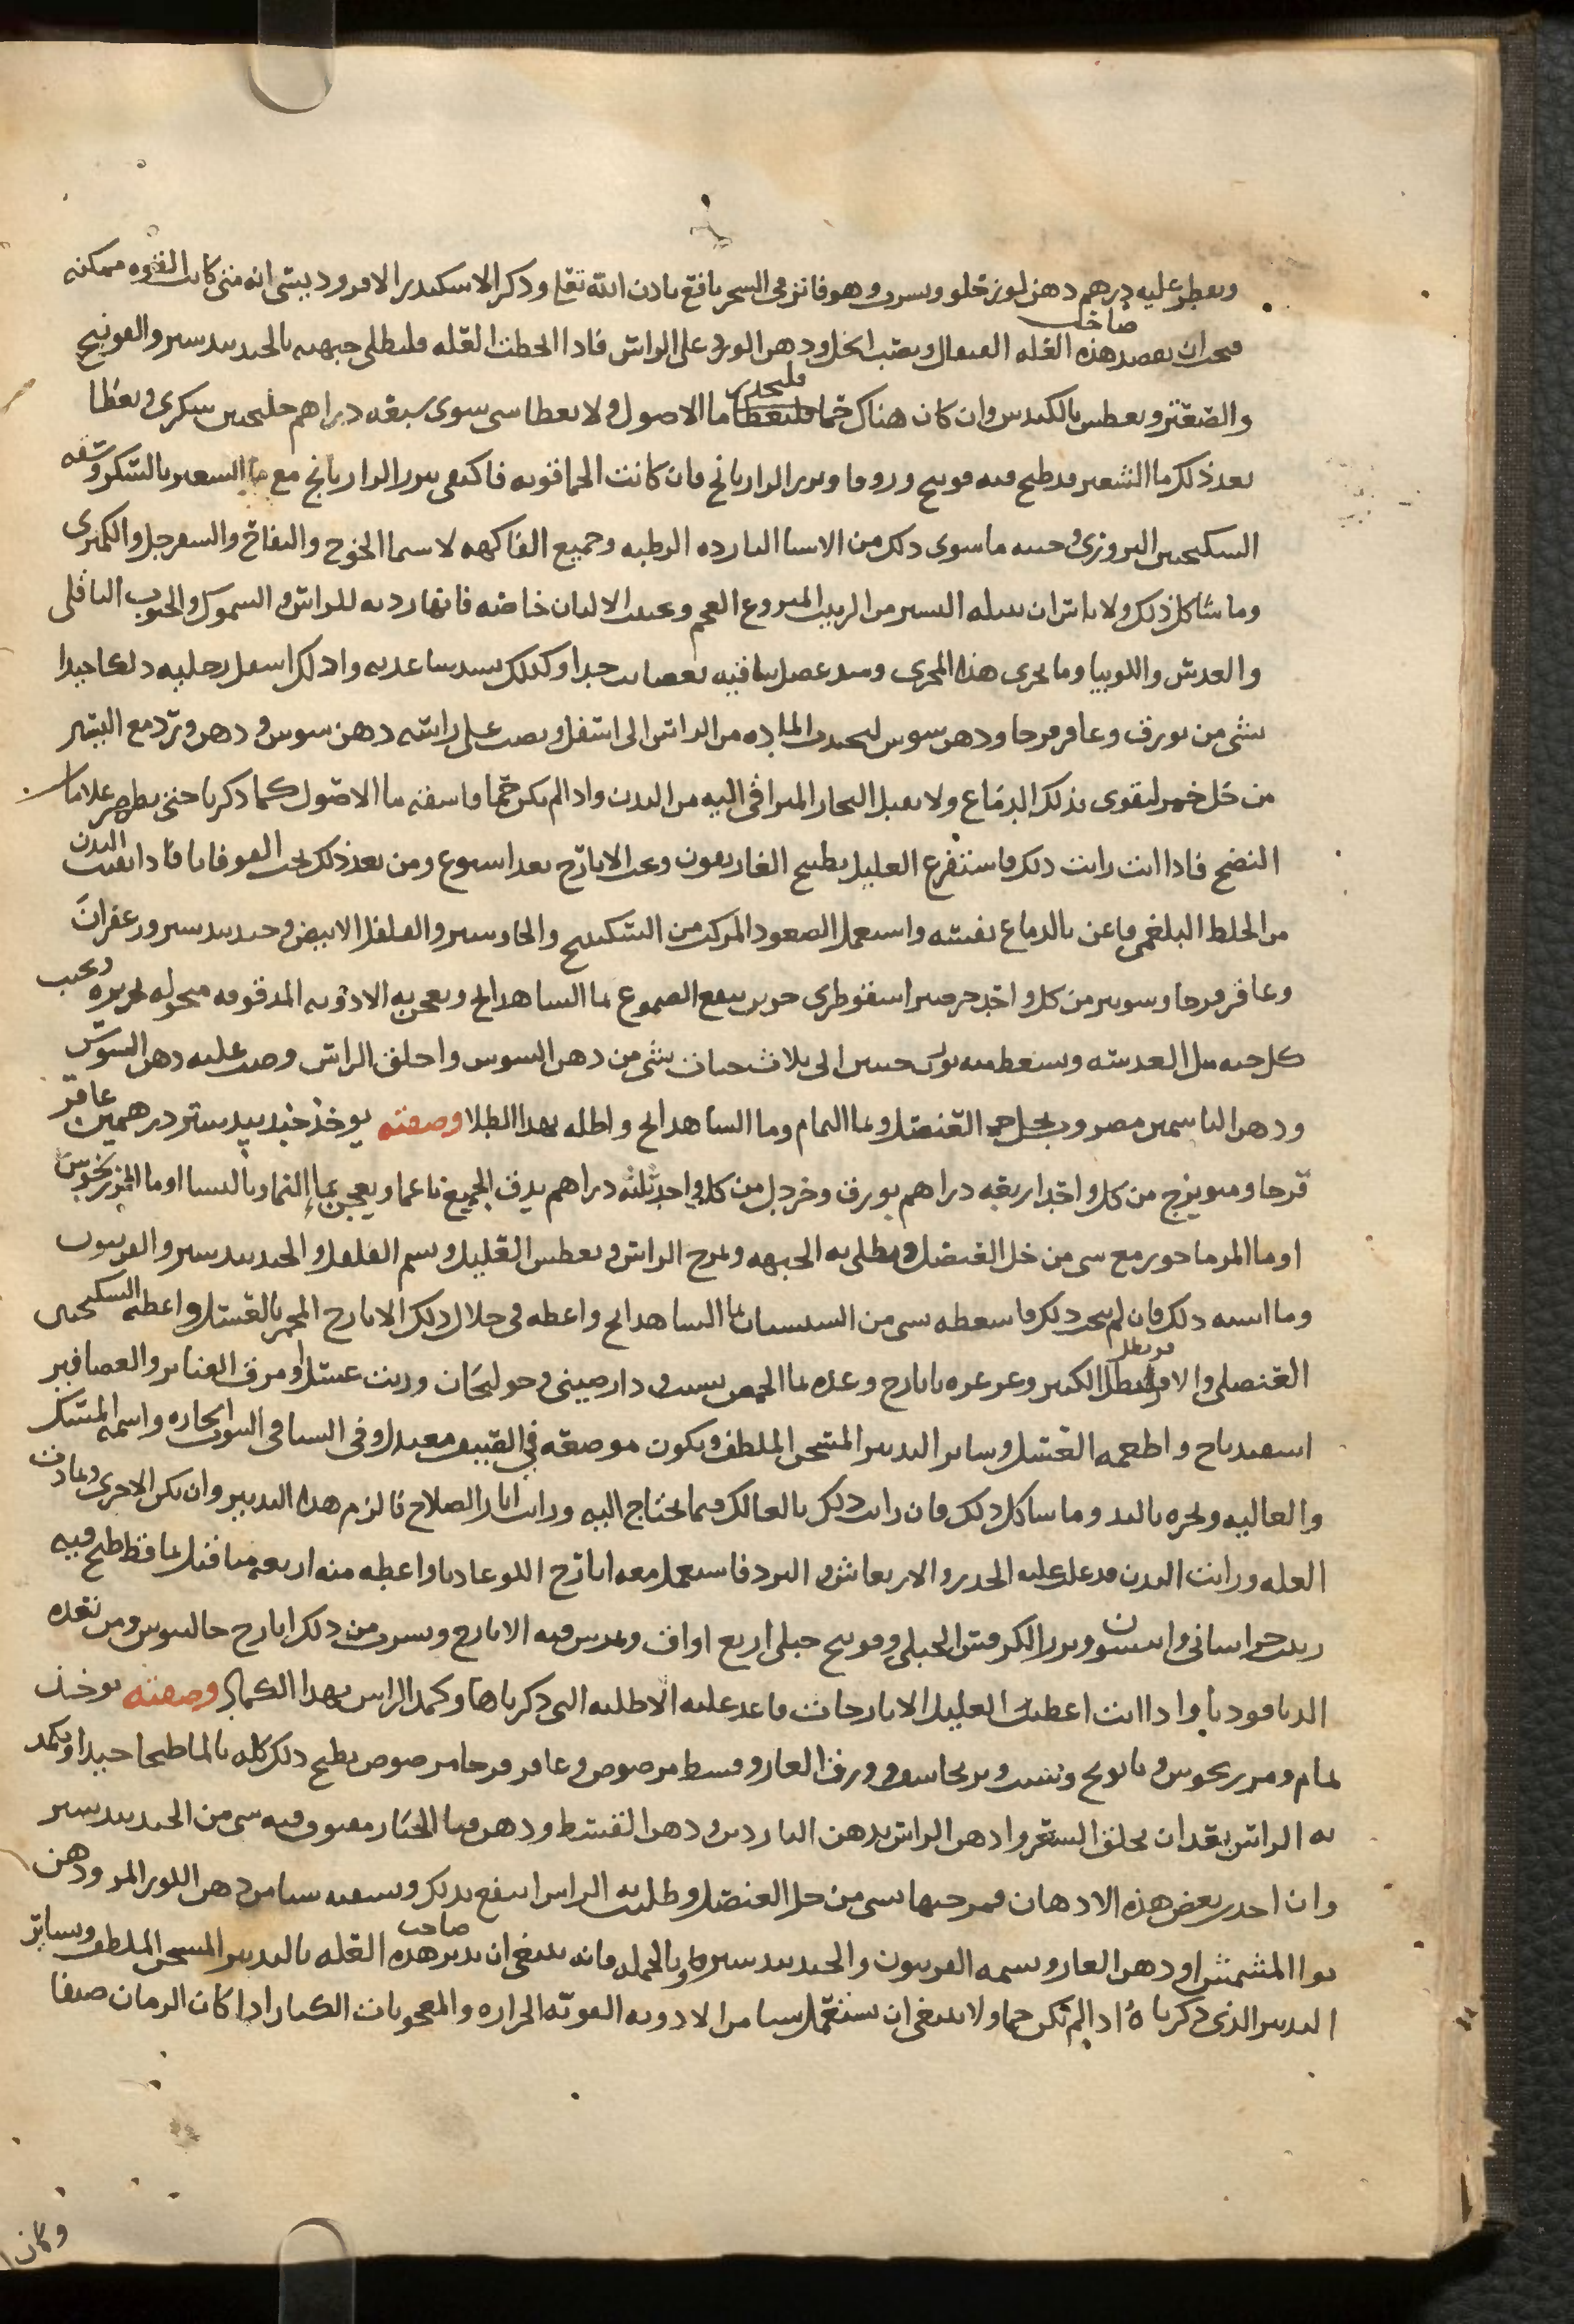 ويقطر عليه درهم دهن لوز حلو ويشرب وهو فاتر في السحر نافع باذن الله تعالى وذكر الاسكندر الافروديسي انه متى كانت القوه ممكنه
فيجب ان يفصد صاحب هذه العله القيفال ويصب الخل ودهن الورد على الراس فاذا انحطت العله فليطلى جبهته بالجندبيدستر والفوتنج
والصعتر ويعطس بالكندس وان كان هناك حما فليحذر ما الاصول ولا يعطا شي سوى سبعه دراهم جلنجبين سكري ويعطا
بعد ذلك ما الشعير قد طبخ فيه فوتنج وزوفا وبزر الرازيانج فان كانت الحما قويه فاكتفي ببزر الرازيانج مع ما الشعير بالسكر وتسقه
السكنجبين البزوري وجنبه ما سوى ذلك من الاشيا البارده الرطبه وجميع الفاكهه لا سيما الخوخ والتفاح والسفرجل والكمثرى
وما شاكل ذلك ولا باس ان تنيله اليسير من الزبيب المنزوع العجم وتجنب الالبان خاصه فانها رديه للراس والسموك والحبوب الباقلى
والعدس واللوبيا وما يجري هذا المجرى وشد عضل ساقيه بعصايب جيدا وكذلك تشد ساعديه وادلك اسفل رجليه دلكا جيدا
بشي من بورق وعاقرقرحا ودهن سوسن لتجذب الماده من الراس الى اسفل وتصب على راسه دهن سوسن ودهن ورد مع اليسير
من خل خمر ليقوى بذلك الدماغ ولا يقبل البخار المتراقي اليه من البدن واذا لم يكن حما فاسقه ما الاصول كما ذكرنا حتى يظهر علامات
النضج فاذا انت رايت ذلك فاستفرغ العليل بطبيخ الغاريقون وبحب الايارج بعد اسبوع ومن بعد ذلك بحب القوقايا فاذا نقيت البدن
من الخلط البلغمي فاعن بالدماغ نفسه واستعمل الصعود المركب من السكبينج والجاوشير والفلفل الابيض وجندبيدستر وزعفران
وعاقرقرحا وشونيز من كل واحد جز صبر اسقوطري جزين ينقع الصموغ بما الشاهدانج ويعجن به الادويه المدقوقه منخوله بحريره ويحبب
كل حبه مثل العدسه ويسعط منه بوزن حبتين الى ثلاث حبات بشي من دهن السوسن واحلق الراس وصب عليه دهن السوسن
ودهن الياسمين مضروب بخل خمر العنصل وبما النمام وما الشاهدانج واطله بهذا الطلا وصفته يوخذ جندبيدستر درهمين عاقر
قرحا وميويزج من كل واحد اربعه دراهم بورق وخردل من كل واحد ثلثه دراهم يدق الجميع ناعما ويعجن بماء النمام بالنسا او ما المرزنجوش
او ما المرماحوز مع شي من خل العنصل ويطلى به الجبهه ويمرخ الراس ويعطس القليل ويشم الفلفل والجندبيدستر والفربيون
وما اشبه ذلك فان لم ينجح ذلك فاسعطه شي من السيسبان بما الشاهدانج واعطه في خلال ذلك الايارج المخمر بالعسل واعطيه السكنجبين
العنصلي والاطريفل الكبير وغرغره بايارج وغذه بما الحمص بشبت ودارصيني وخولنجان وزيت عسل او مرق القنابر والعصافير
اسفيدباج واطعمه العسل وساير التدبير المسخن الملطف ويكون موضعه في الصيف معتدل وفي الشتا في البيوت الحاره واشمه المسك
والغاليه وبخره بالند وما شاكل ذلك فان رايت ذلك بالعا لك فيما تحتاج اليه ورايت اثار الصلاح فالزم هذا التدبير وان تكن الاخرى وتمادت
العله ورايت البدن قد غلب عليه الخدر والارتعاش والبرد فاستعمل معه ايارج اللوغاذيا واعطه منه اربعه مثاقيل بما قد طبخ فيه
زبيب خراساني وانيسون وبزر الكرفس الجبلي وفوتنج جبلي اربع اواق ويمرس فيه الايارج ويشرب من ذلك ايارج جالينوس ومن بعده
الدياقوديا واذا انت اعطيت العليل الايارجات فاعد عليه الاطليه التي ذكرناها وكمد الراس بهذا الكماد وصفته يوخذ
نمام ومرزنجوش وبابونج وشبت وبرنجاسف وورق الغار وقسط مرضوض وعاقرقرحا مرضوض يطبخ ذلك كله بالما طبخا جيدا ويكمد
به الراس بعد ان يحلق الشعر وادهن الراس بدهن الناردين ودهن القسط ودهن قثا الحمار مفتوق فيه شي من الجندبيدستر
وان اخذت بعض هذه الادهان فمزجتها بشي من خل العنصل وطليت الراس انتفع بذلك وتسقيه شيا من دهن اللوز المر ودهن
نوا المشمش او دهن الغار ويشمه الفربيون والجندبيدستر وبالجمله فانه ينبغي ان يدبر صاحب هذه العله بالتدبير المسخن الملطف وبساير
التدبير الذي ذكرناه اذا لم تكن حما ولا ينبغي ان تستعمل شيا من الادويه القويه الحراره والمعجونات الكبار اذا كان الزمان صيفا
وكان